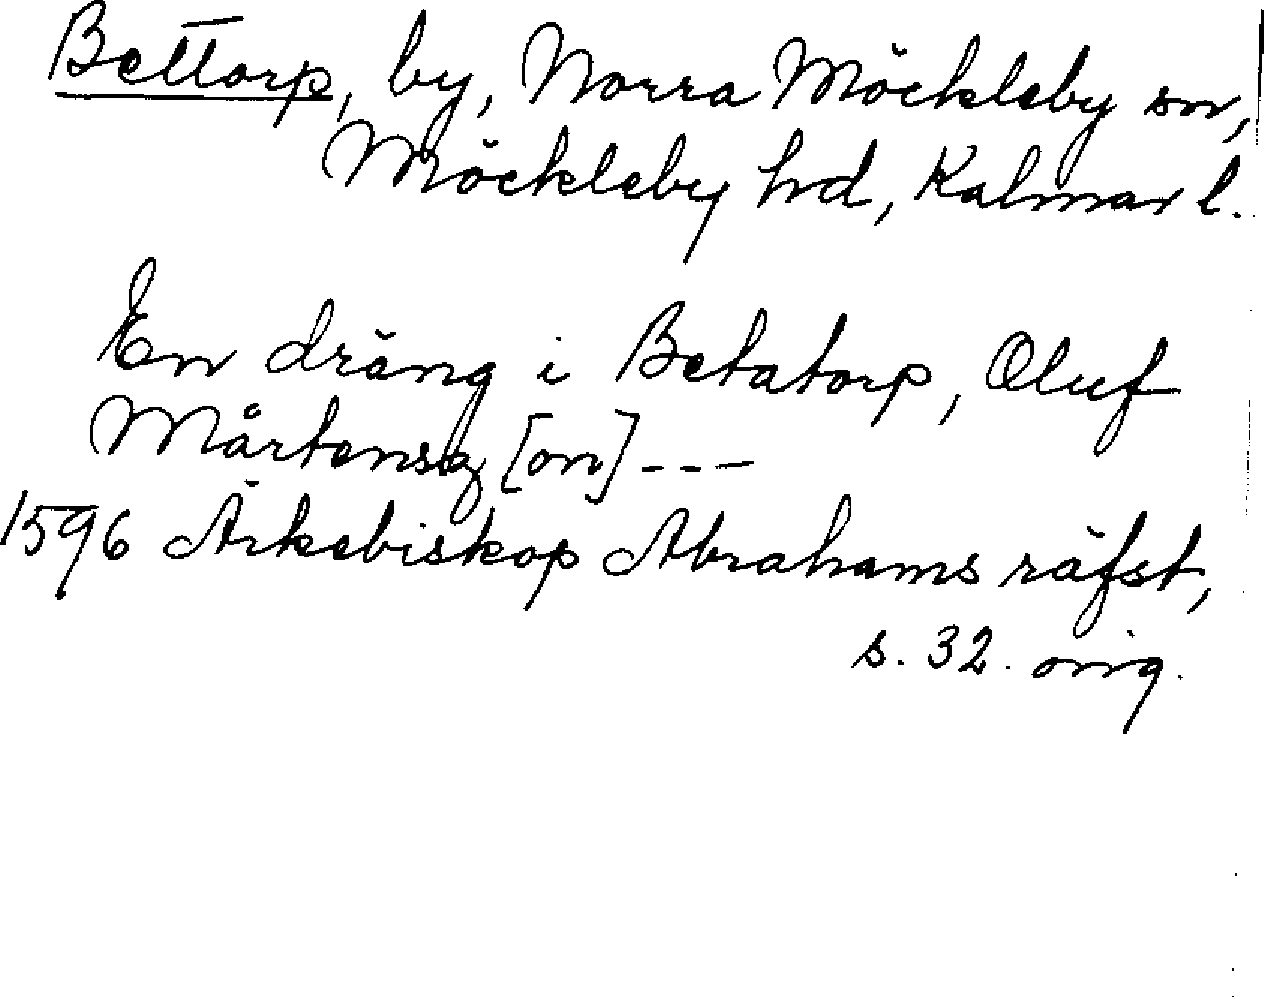 Bettorp, by, Norra Möckleby sn,
Möckleby hd, Kalmar l.
En dräng i Betatorp, Oluf
Mårtensz [on] ---
1596 Ärkebiskop Abrahams räfst,
s. 32. orig.